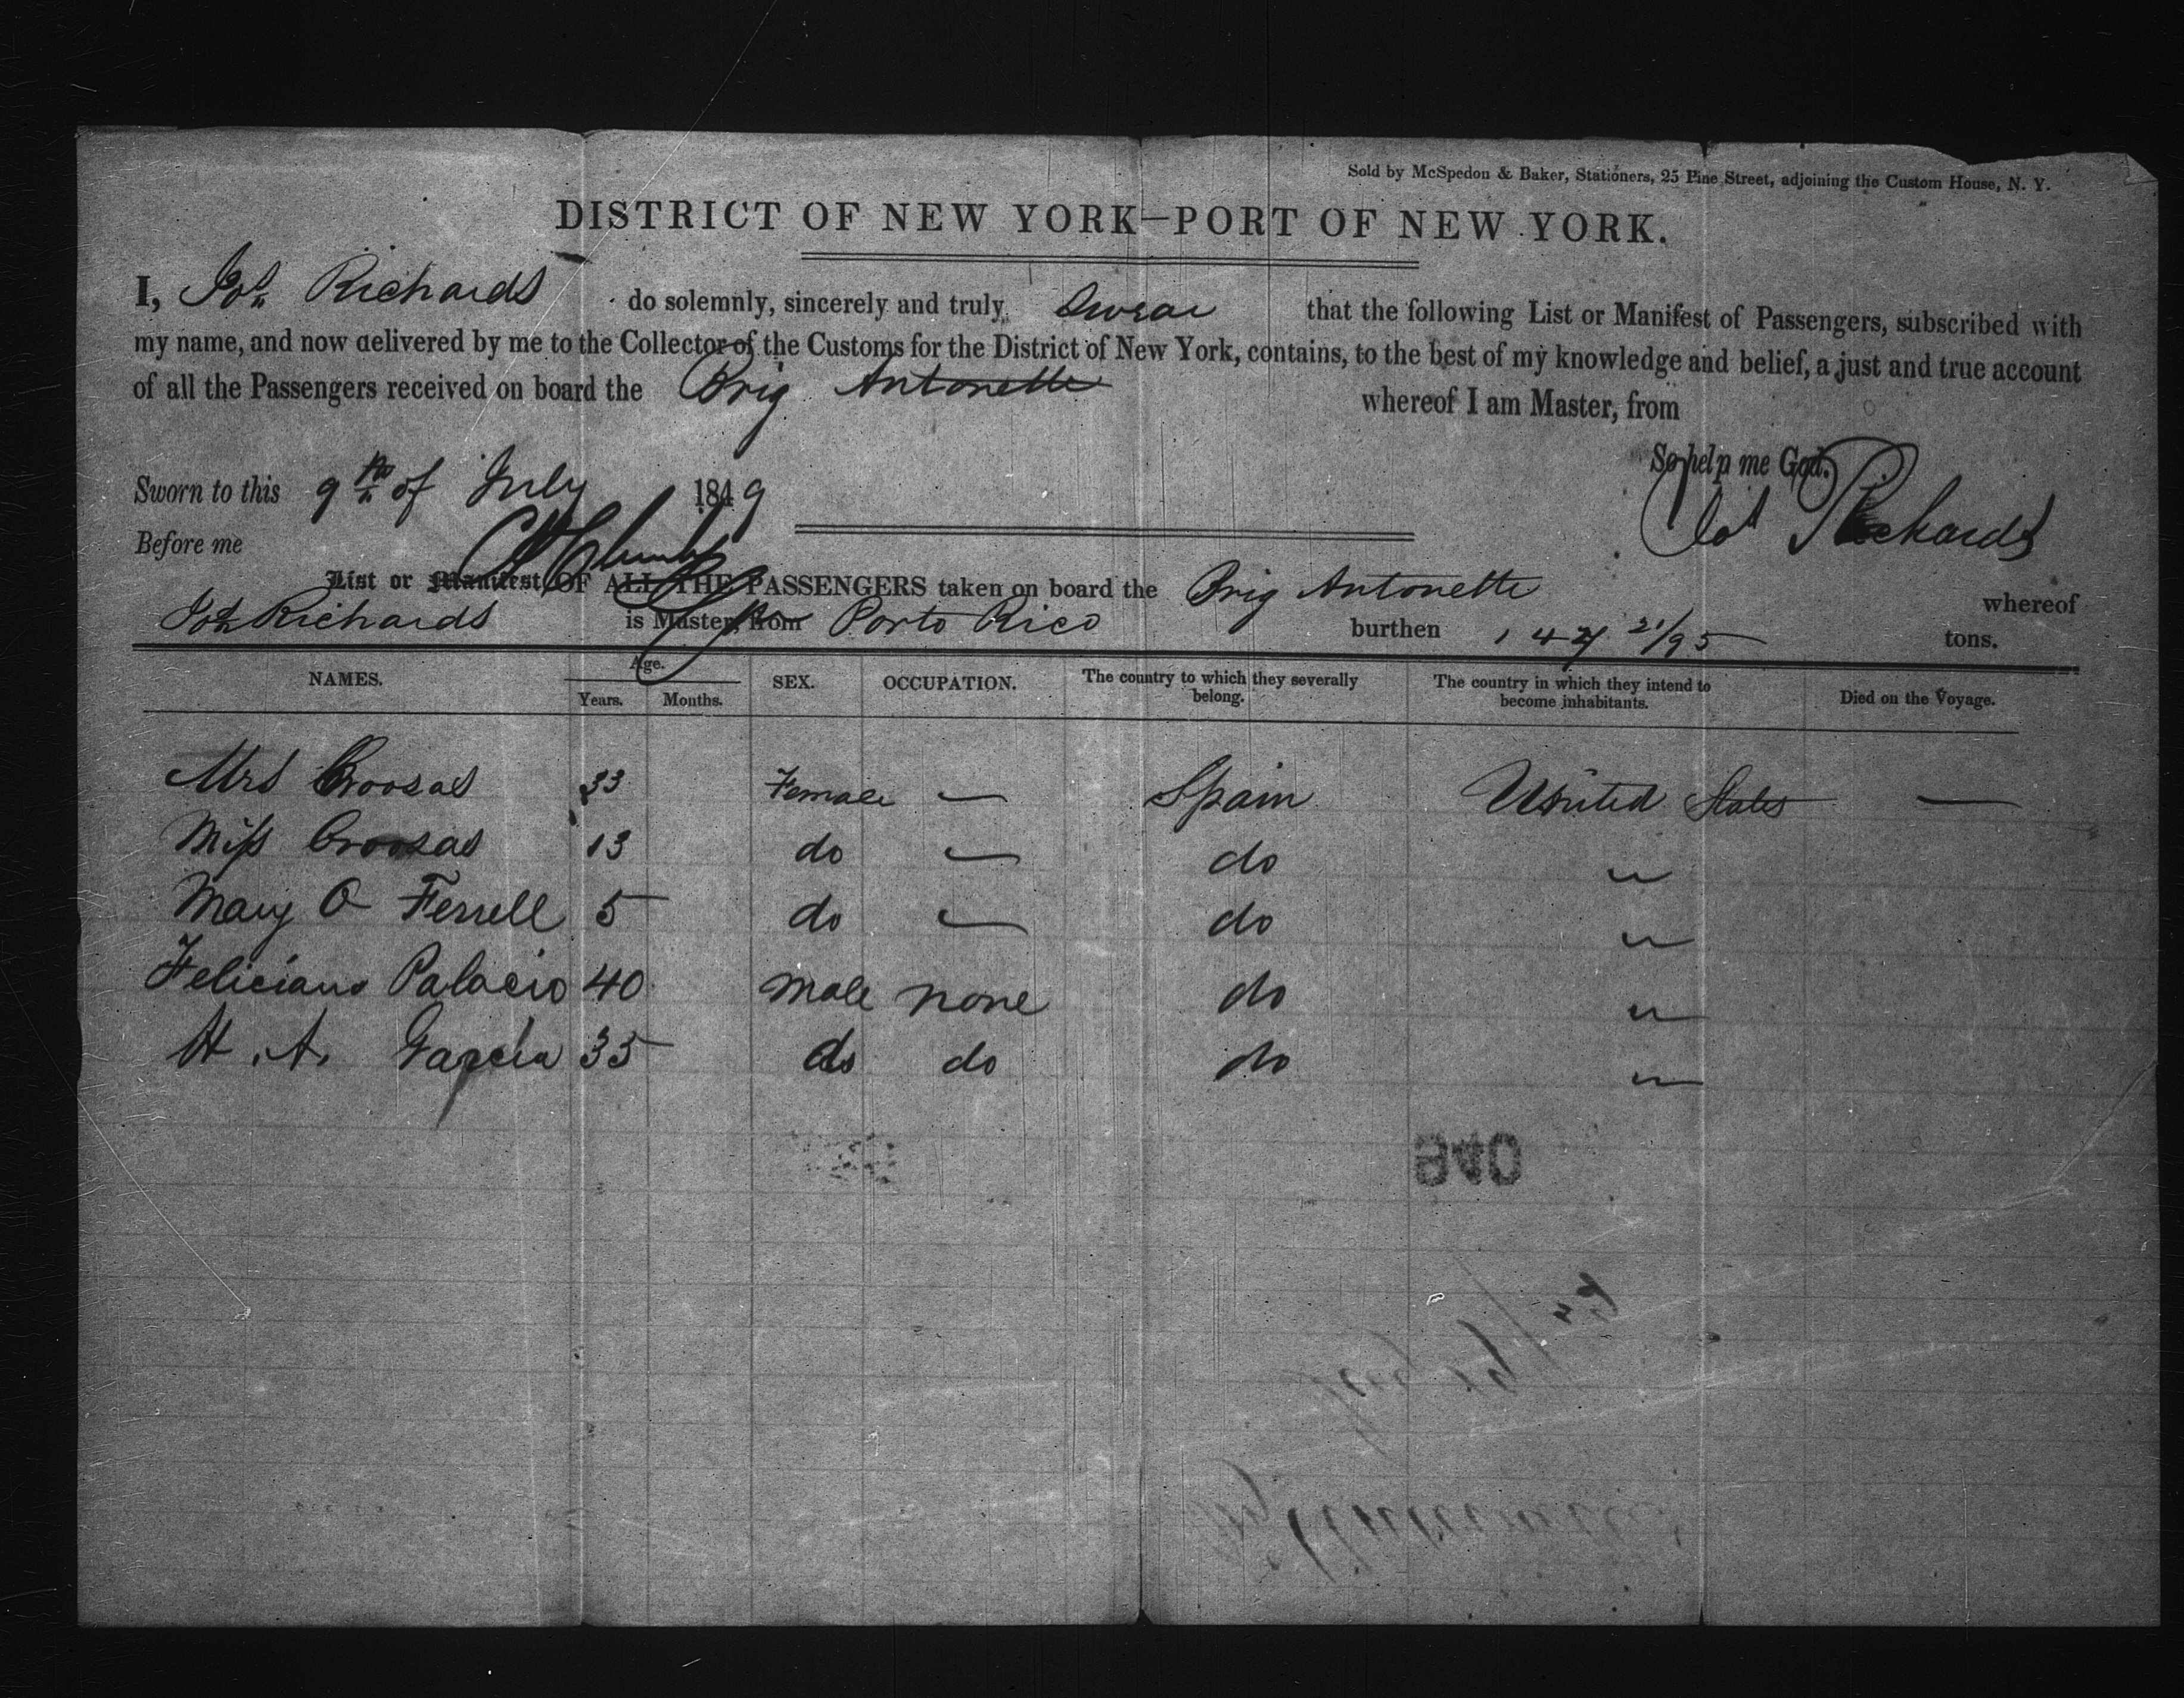 Sold by McSpedon & Baker, Stationers, 25 Pine Street, adjoining the Custom House, N. Y.
DISTRICT OF NEW YORK—PORT OF NEW YORK.
I, Joh Richards do solemnly, sincerely and truly, Swear that the following List or Manifest of Passengers, subscribed with
my name, and now delivered by me to the Collector of the Customs for the District of New York, contains, to the best of my knowledge and belief, a just and true account
of all the Passengers received on board the Brig Antonette whereof I am Master, from
So help me God.
Sworn to this 9th of July 1849 Richards
Before me
List or Manifest OF ALL THE PASSENGERS taken on board the Brig Antonette whereof
Joh Richards is Master, from Porto Rico burthen 21/95 tons.
NAMES. Age. Years. Months. SEX. OCCUPATION. The country to which they severally belong. The country in which they intend to become inhabitants. Died on the Voyage.
Mrs Croosas 33 Female — Spain United States —
Miss Croosas 13 do — do "
Mary O Ferrell 5 do — do "
Feliciano Palacio 40 Male none do "
H. A. Garcia 35 do do do "
940